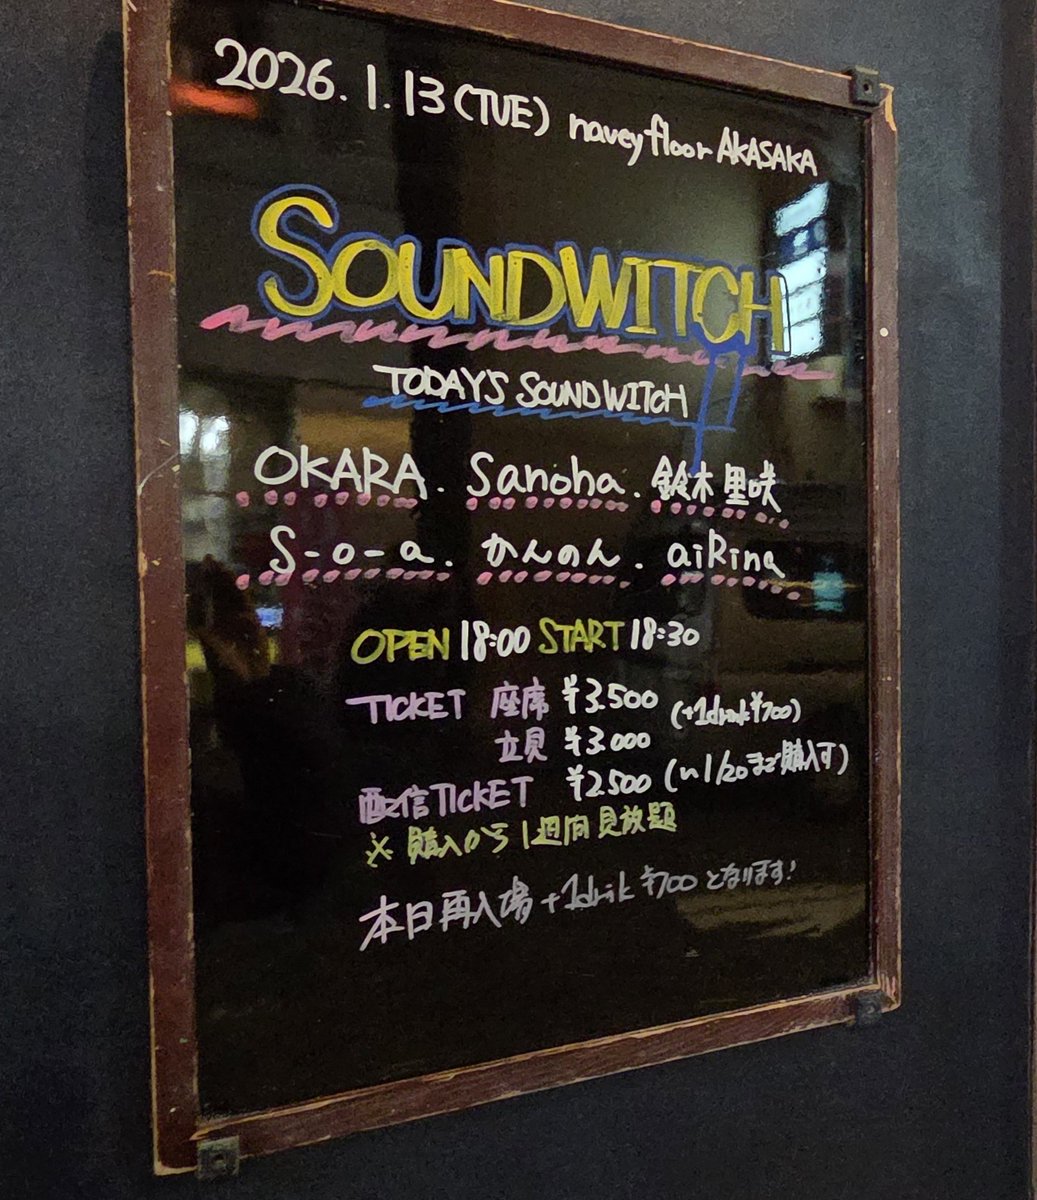 2026.1.13(TUE) navey floor AKASAKA
SOUNDWITCH
TODAY'S SOUNDWITCH
OKARA. Sanoha. 鈴木里咲
S-o-a. かんのん. aiRina
OPEN 18:00 START 18:30
TICKET 座席 ¥3.500 (+1drink¥700)
立見 ¥3.000
配信TICKET ¥2500 (1/20まで購入可)
※購入から1週間見放題
本日再入場+1drink ¥700となります!